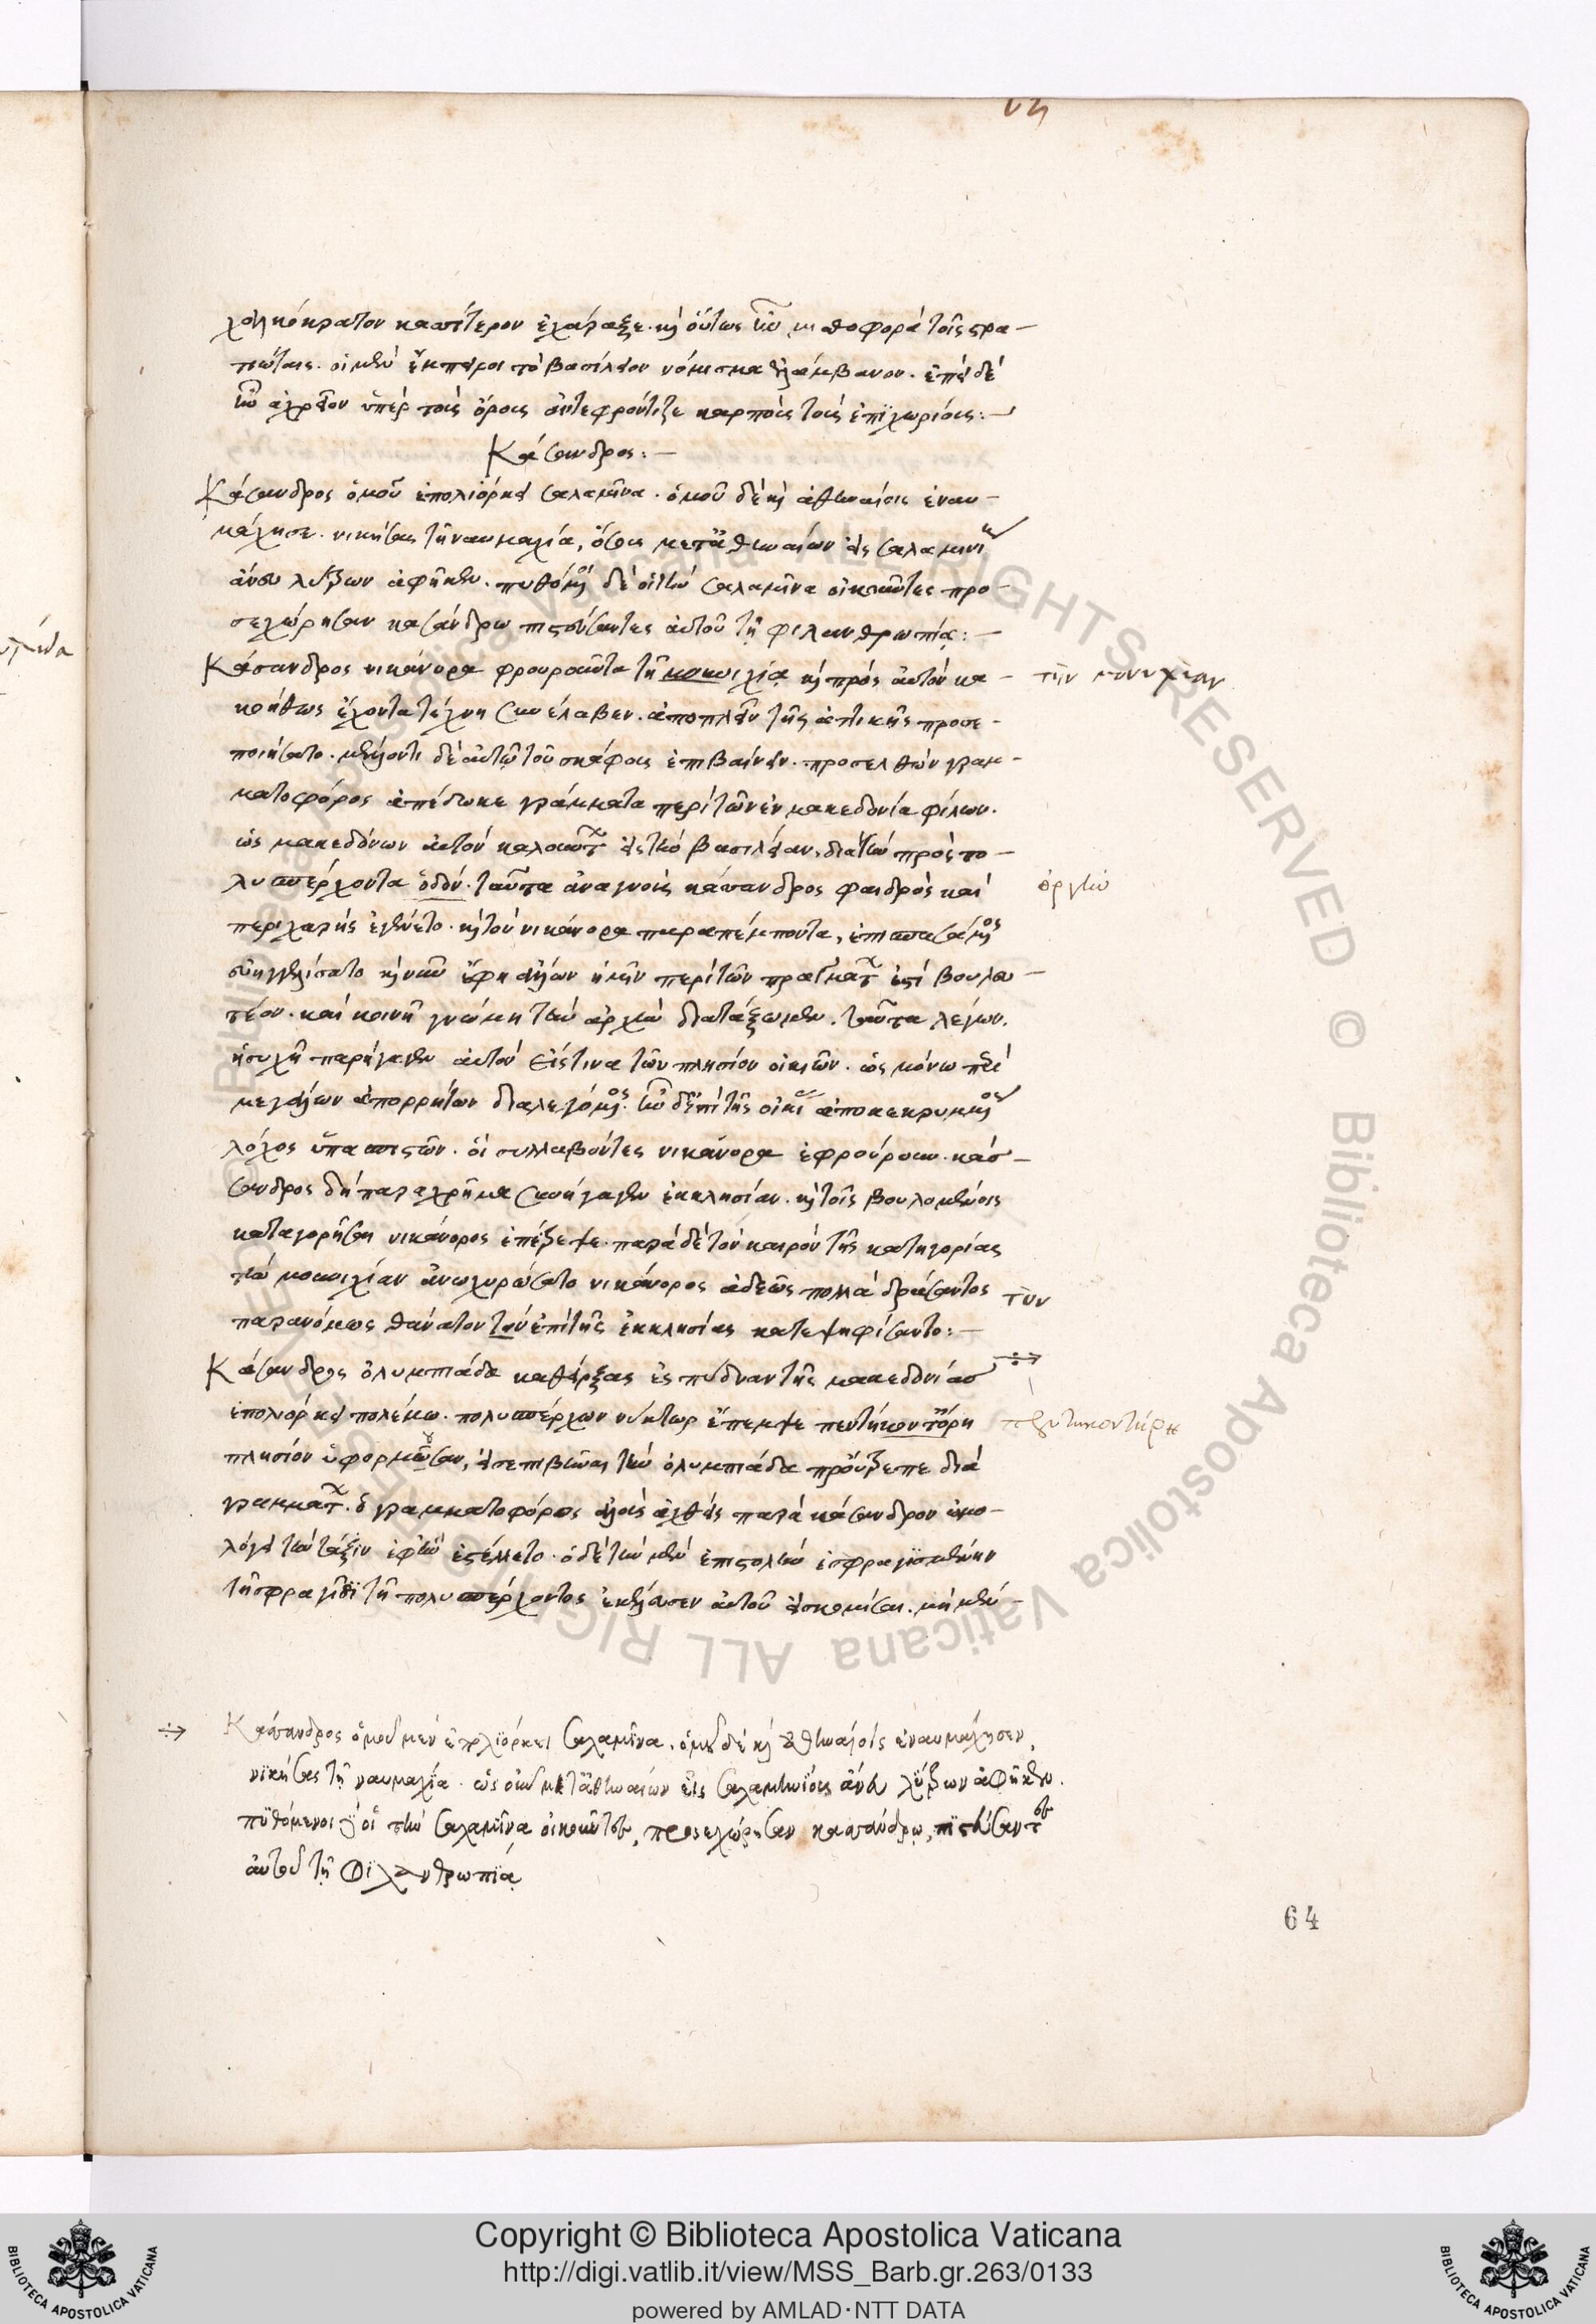 χαλκόκρατον κασσίτερον ἐχάραξε. κὶ οὕτως ἦν μισθοφορὰ τοῖς στρα-
τιώταις. οἱ μὲν ἔμποροι τὸ βασίλειον νόμισμα ἐλάμβανον. ἐπεὶ δὲ
ἦν ἀχρεῖον ὑπὲρ τοὺς ὅρους ἀντεφρόντιζε καρποὺς τοὺς ἐπιχωρίους:—
Κάσανδρος:—
Κάσανδρος ὁμοῦ ἐπολιόρκει σαλαμῖνα. ὁμοῦ δὲ κὶ ἀθηναίοις ἐναυ-
μάχησε. νικήσας τῆ ναυμαχία, ὅσοι μετὰ ἀθηναίων εἰς σαλαμινι
ἄνευ λύτρων ἀφῆκεν. πυθόμενοι δὲ οἱ τὴν σαλαμῖνα οἰκοῦντες προ-
σεχώρησαν κασάνδρω πιστεύσαντες αὐτοῦ τῆ φιλανθρωπία:—
Κάσανδρος νικάνορα φρουροῦντα τῆ μουνιχία κὶ πρὸς αὐτὸν κα-
κοήθως ἔχοντα τέχνη συνέλαβεν. ἀποπλεῖν τῆς ἀτικῆς προσε-
ποιήσατο. μέλλοντι δὲ αὐτῶ τοῦ σκάφους ἐπιβαίνειν. προσελθὼν γραμ-
ματοφόρος ἀπέδωκε γράμματα περὶ τῶν ἐν μακεδονία φίλων.
ὡς μακεδόνων αὐτὸν καλούντων εἰς τὴν βασιλείαν, διὰ τὴν πρὸς πο-
λυσπέρχοντα ὁδόν. ταῦτα ἀναγνοὺς κάσσανδρος φαιδρὸς καὶ
περιχαρὴς ἐγένετο. κὶ τὸν νικάνορα παραπέμποντα, ἐπισπασάμενος
εὐηγγελίσατο κὶ νῦν ἔφη ἄλλων ἡμῖν περὶ τῶν πραγμάτων ἐστὶ βουλευ-
τέον. καὶ κοινῆ γνώμη τὴν ἀρχὴν διατάξωμεν. ταῦτα λέγων.
ἡσυχῆ παρήγαγεν αὐτὸν εἴς τινα τῶν πλησίον οἰκιῶν. ὡς μόνω περὶ
μεγάλων ἀπορρήτων διαλεγόμενος. ἦν δὲ ἐπὶ τῆς οἰκίας ἀποκεκρυμμένος
λόχος ὑπασπιστῶν. οἱ συλλαβόντες νικάνορα ἐφρούρουν. κάσ-
σανδρος δὴ παραχρῆμα συνήγαγεν ἐκκλησίαν. κὶ τοῖς βουλομένοις
καταγορῆσαι νικάνορος ἐπέτρεψε. παρὰ δὲ τὸν καιρὸν τῆς κατηγορίας
τὴν μουνιχίαν ἀνωχυρώσατο νικάνορος ἀδεῶς πολλὰ δράσαντος
παρανόμως θάνατον τὸν ἐπὶ τῆς ἐκκλησίας κατεψηφίσαντο:—
Κάσανδρος ὀλυμπιάδα καθείρξας ἐς πύδναν τῆς μακεδονίας
ἐπολιόρκει πολέμω. πολυσπέρχων νύκτωρ ἔπεμψε πεντήκοντόρη
πλησίον ὑφορμοῦσαν, εἰς ἐπιβῆναι τὴν ὀλυμπιάδα προὔτρεπε διὰ
γραμμάτων. ὁ γραμματοφόρος ἁλοὺς ἀχθεὶς παρὰ κάσανδρον ὡμο-
λόγει τὴν τάξιν ἐφ' ἣν ἐστέλλετο. ὁ δὲ τὴν μὲν ἐπιστολὴν ἐσφραγισμένην
τῆ σφραγῖδι τῆ πολυσπέρχοντος ἐκέλευσεν αὐτοῦ εἰσκομίσαι. μὴ μὲν
τὴν μουνυχίαν
ὀργὴν
τῶν
πεντηκοντήρη
Κάσσανδρος ὁμοῦ μὲν ἐπολιόρκει σαλαμῖνα, ὁμοῦ δὲ κὶ ἀθηναίοις ἐναυμάχησεν,
νικήσας τῆ ναυμαχία. ὡς οὖν μετὰ ἀθηναίων εἷς σαλαμινίους ἄνευ λύτρων ἀφῆκεν.
πυθόμενοι δὲ οἱ τὴν σαλαμῖνα οἰκοῦντες, προσεχώρησαν κασσάνδρω, πιστεύσαντες
αὐτοῦ τῆ φιλανθρωπία
64
Copyright © Biblioteca Apostolica Vaticana
http://digi.vatlib.it/view/MSS_Barb.gr.263/0133
powered by AMLAD·NTT DATA
BIBLIOTECA APOSTOLICA VATICANA
BIBLIOTECA APOSTOLICA VATICANA